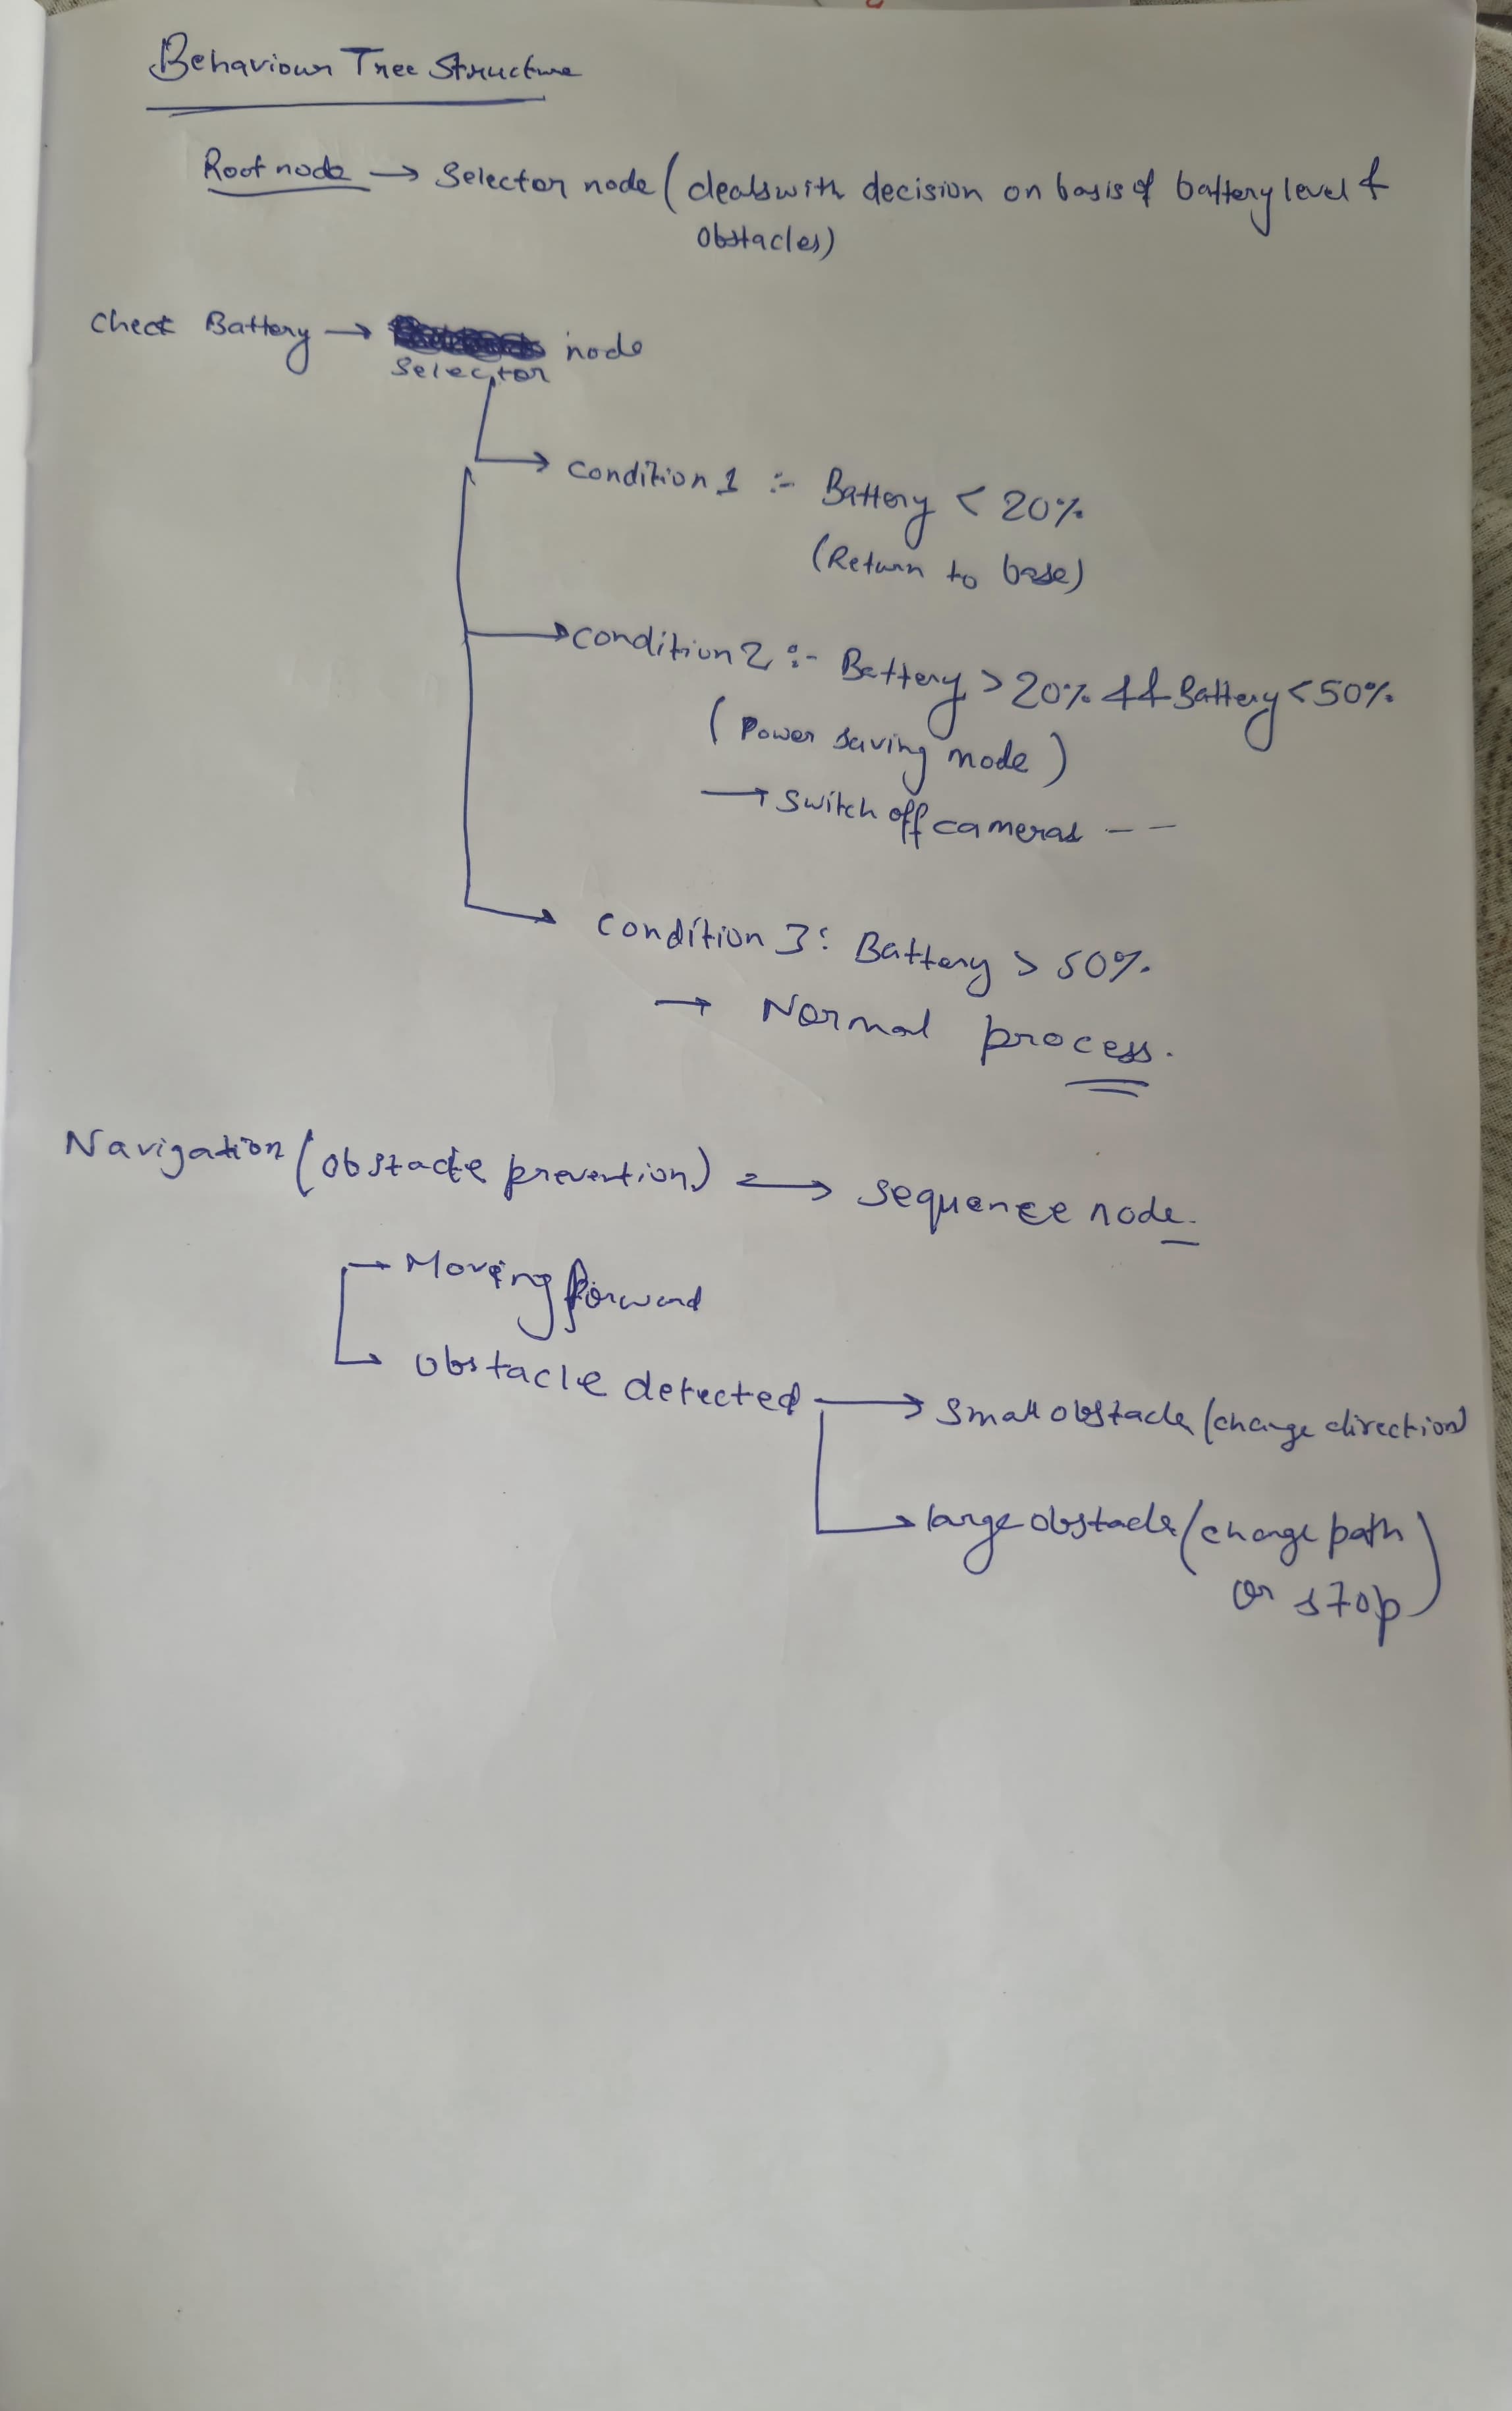 Behaviour Tree Structure
Root node → Selector node (deals with decision on basis of battery level &
obstacles)
Check Battery → node
Selector
→ condition 1 :- Battery < 20%
(Return to base)
→ condition 2 :- Battery > 20% && Battery < 50%
(Power saving mode)
→ switch off cameras - -
→ Condition 3 : Battery > 50%.
→ Normal process.
Navigation (obstacle prevention) → sequence node.
→ Moving forward
→ obstacle detected → small obstacle (change direction)
→ large obstacle (change path
or stop)